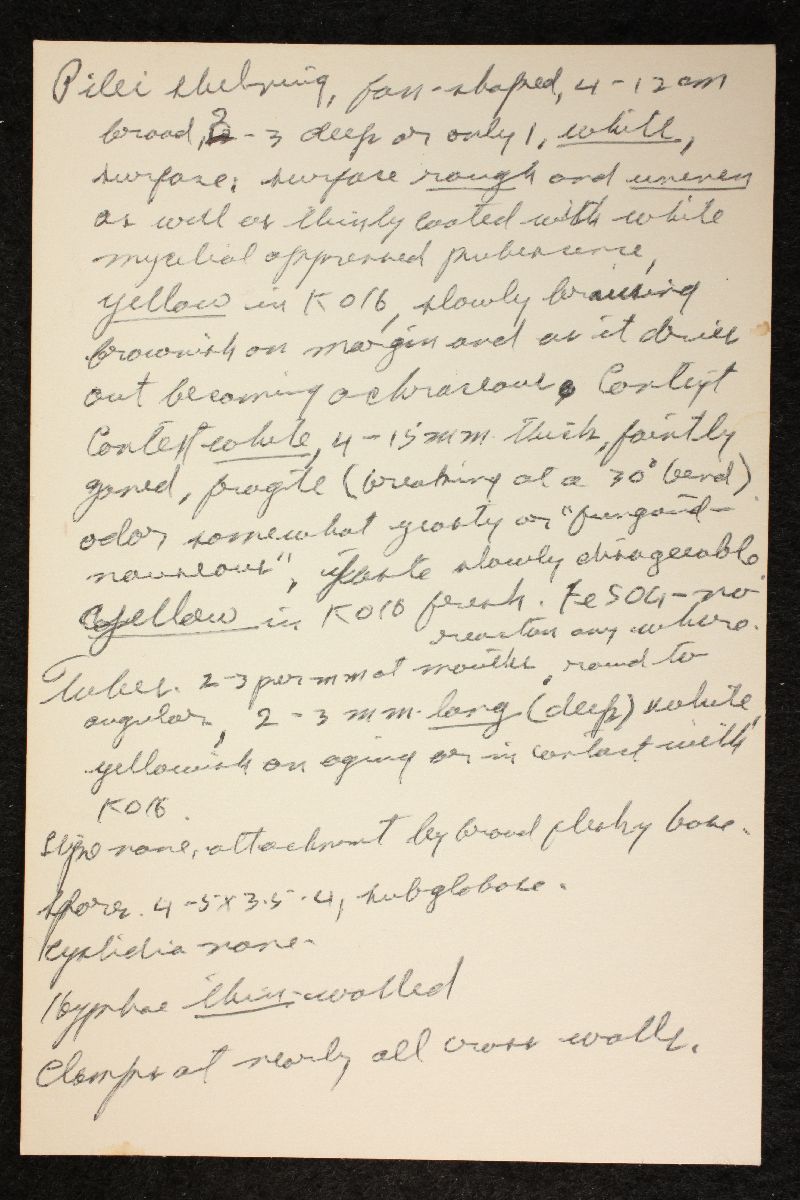 Pilei shelving, fan-shaped, 4-12 cm
broad, 2-3 deep or only 1, white,
surface; surface rough and uneven
as well as thinly coated with white
mycelial appressed pubescence,
yellow in KOH, slowly bruising
brownish on margin and as it dries
out becoming ochraceous. Context
Context white, 4-15 mm thick, faintly
zoned, fragile (breaking at a 30° bend)
odor somewhat yeasty or "fungoid-
nauseous", taste slowly disagreeable.
yellow in KOH fresh. FeSO4 - no
reaction any where.
Tubes. 2-3 per mm at mouths, round to
angular, 2-3 mm long (deep) white,
yellowish on aging or in contact with
KOH.
Stipe none, attachment by broad fleshy base.
Spores. 4-5 x 3.5-4, subglobose.
Cystidia none.
Hyphae thin-walled
Clamps at nearly all cross walls.